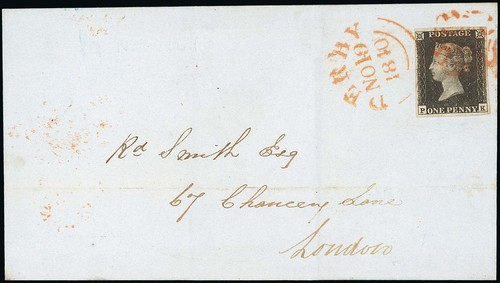 POSTAGE
P K
ONE PENNY
NO 19
1840
Rd Smith Esq
67 Chancery Lane
London